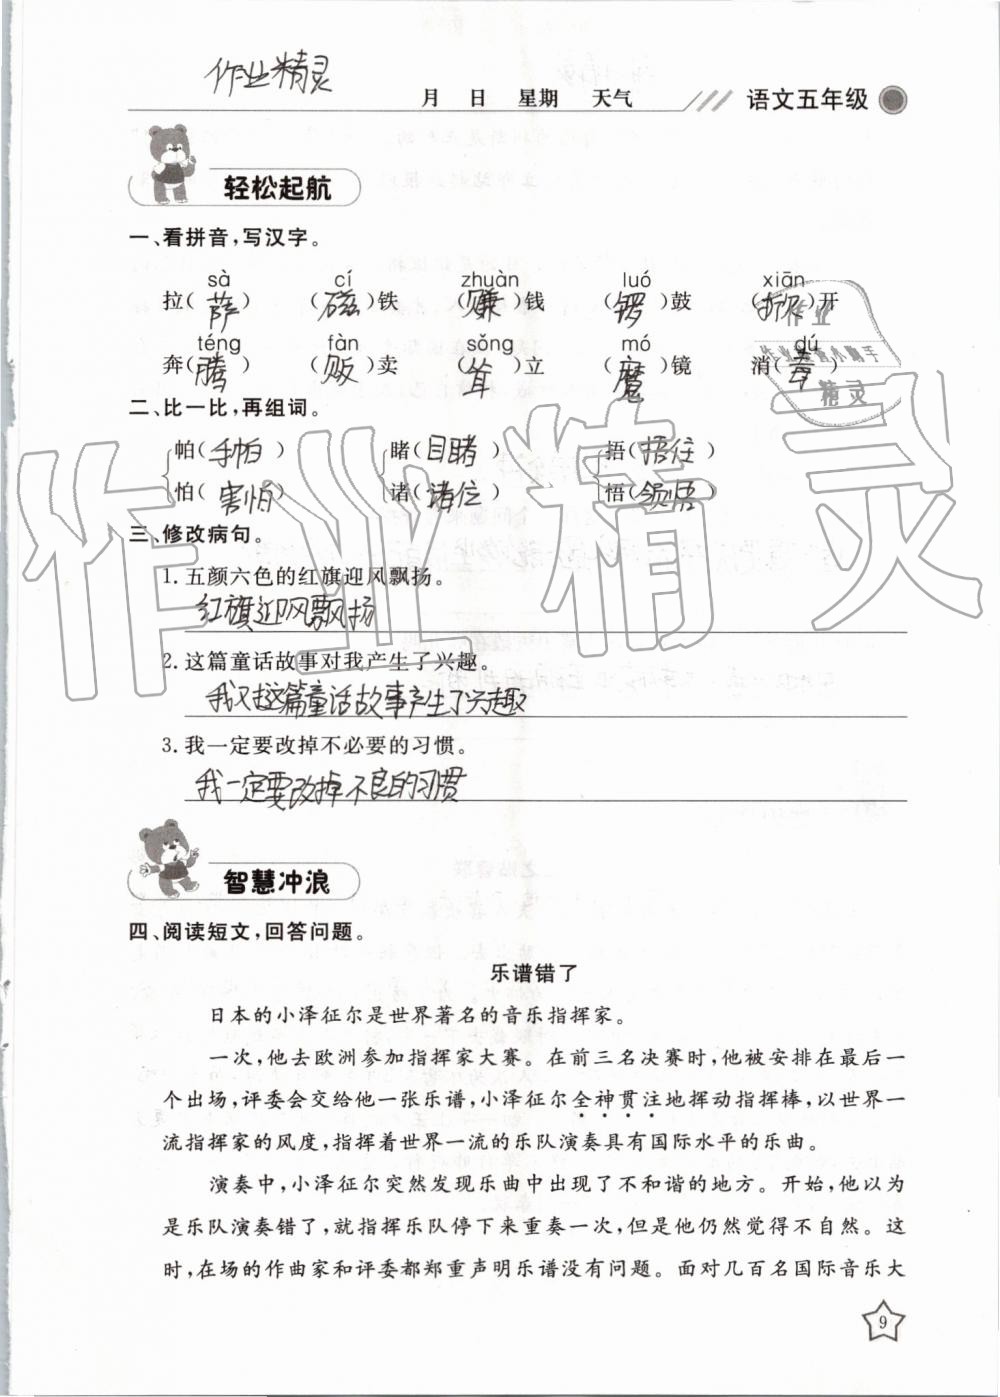 作业精灵
月 日 星期 天气 语文五年级
轻松起航
一、看拼音,写汉字。
sà cí zhuàn luó xiān
拉(萨) (磁)铁 (赚)钱 (锣)鼓 (掀)开
téng fàn sǒng mó dú
奔(腾) (贩)卖 (耸)立 (魔)镜 消(毒)
二、比一比,再组词。
帕(手帕) 睹(目睹) 捂(捂住)
怕(害怕) 诸(诸位) 悟(领悟)
三、修改病句。
1. 五颜六色的红旗迎风飘扬。
红旗迎风飘扬
2. 这篇童话故事对我产生了兴趣。
我对这篇童话故事产生了兴趣
3. 我一定要改掉不必要的习惯。
我一定要改掉不良的习惯
智慧冲浪
四、阅读短文,回答问题。
乐谱错了
日本的小泽征尔是世界著名的音乐指挥家。
一次,他去欧洲参加指挥家大赛。在前三名决赛时,他被安排在最后一
个出场,评委会交给他一张乐谱,小泽征尔全神贯注地挥动指挥棒,以世界一
流指挥家的风度,指挥着世界一流的乐队演奏具有国际水平的乐曲。
演奏中,小泽征尔突然发现乐曲中出现了不和谐的地方。开始,他以为
是乐队演奏错了,就指挥乐队停下来重奏一次,但是他仍然觉得不自然。这
时,在场的作曲家和评委都郑重声明乐谱没有问题。面对几百名国际音乐大
9
作业精灵